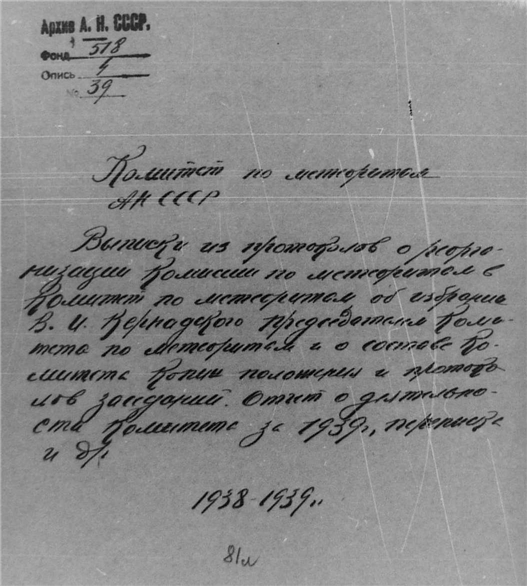 Архив А. Н. СССР.
Фонд 518
Опись 4
№ 39
Комитет по метеоритам
АН СССР
Выписки из протоколов о реорга-
низации Комиссии по метеоритам в
Комитет по метеоритам об избрании
В. И. Вернадского председателем Коми-
тета по метеоритам и о составе Ко-
митета Копии положения и протоко-
лов заседаний. Отчет о деятельно-
сти Комитета за 1939г., переписка
и др.
1938-1939гг.
81л